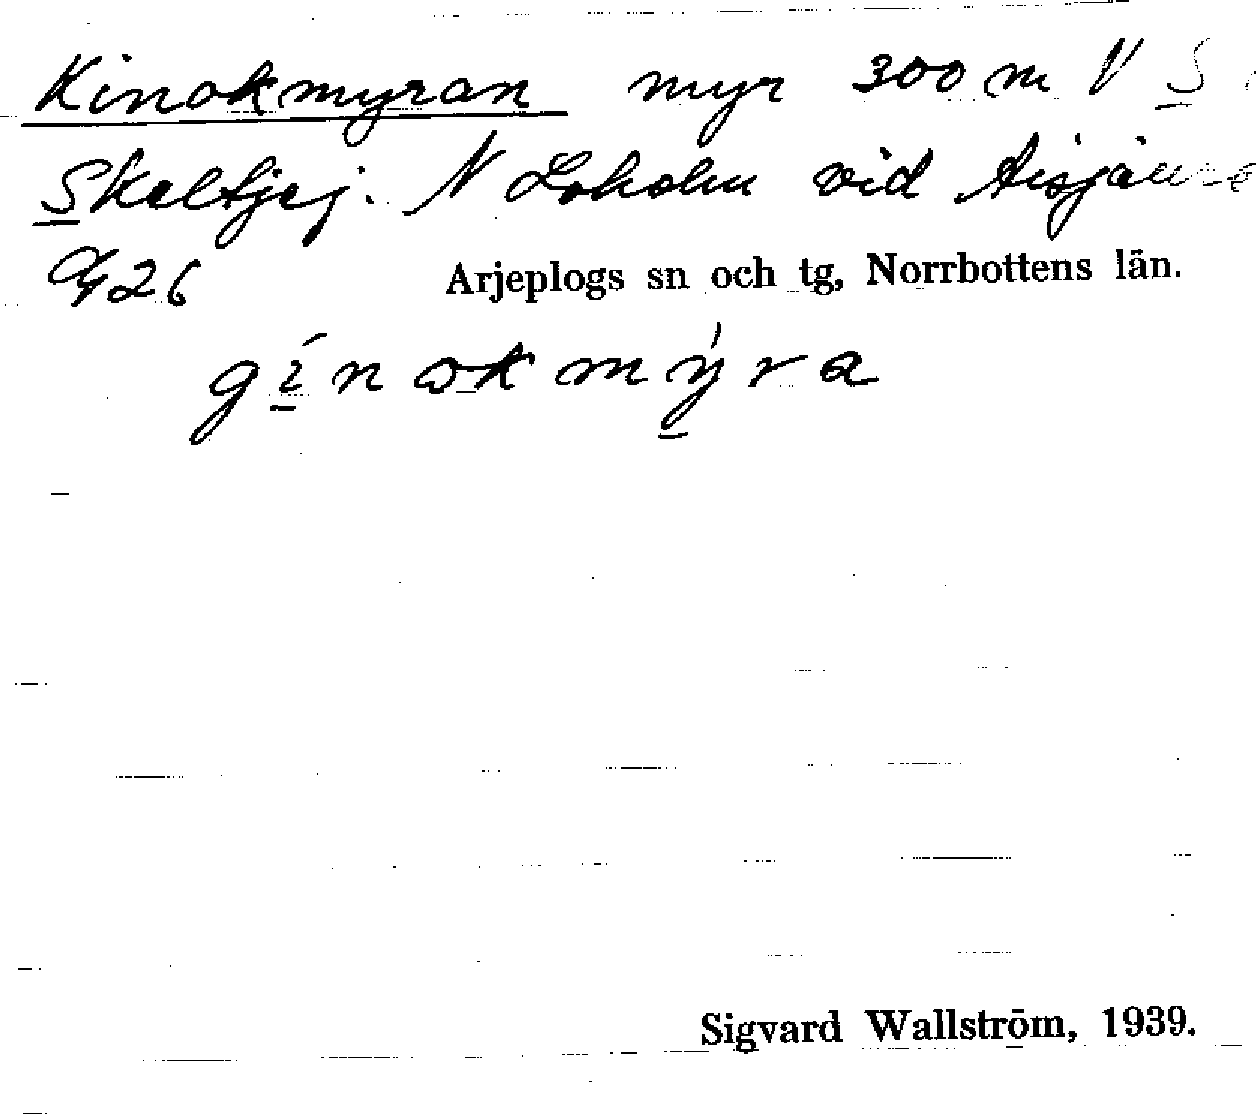 Kinokmyran myr 300 m V S
Skeltjej. N Loholm vid Aisjaure
26
Arjeplogs sn och tg, Norrbottens län.
gínokmýra
Sigvard Wallström, 1939.